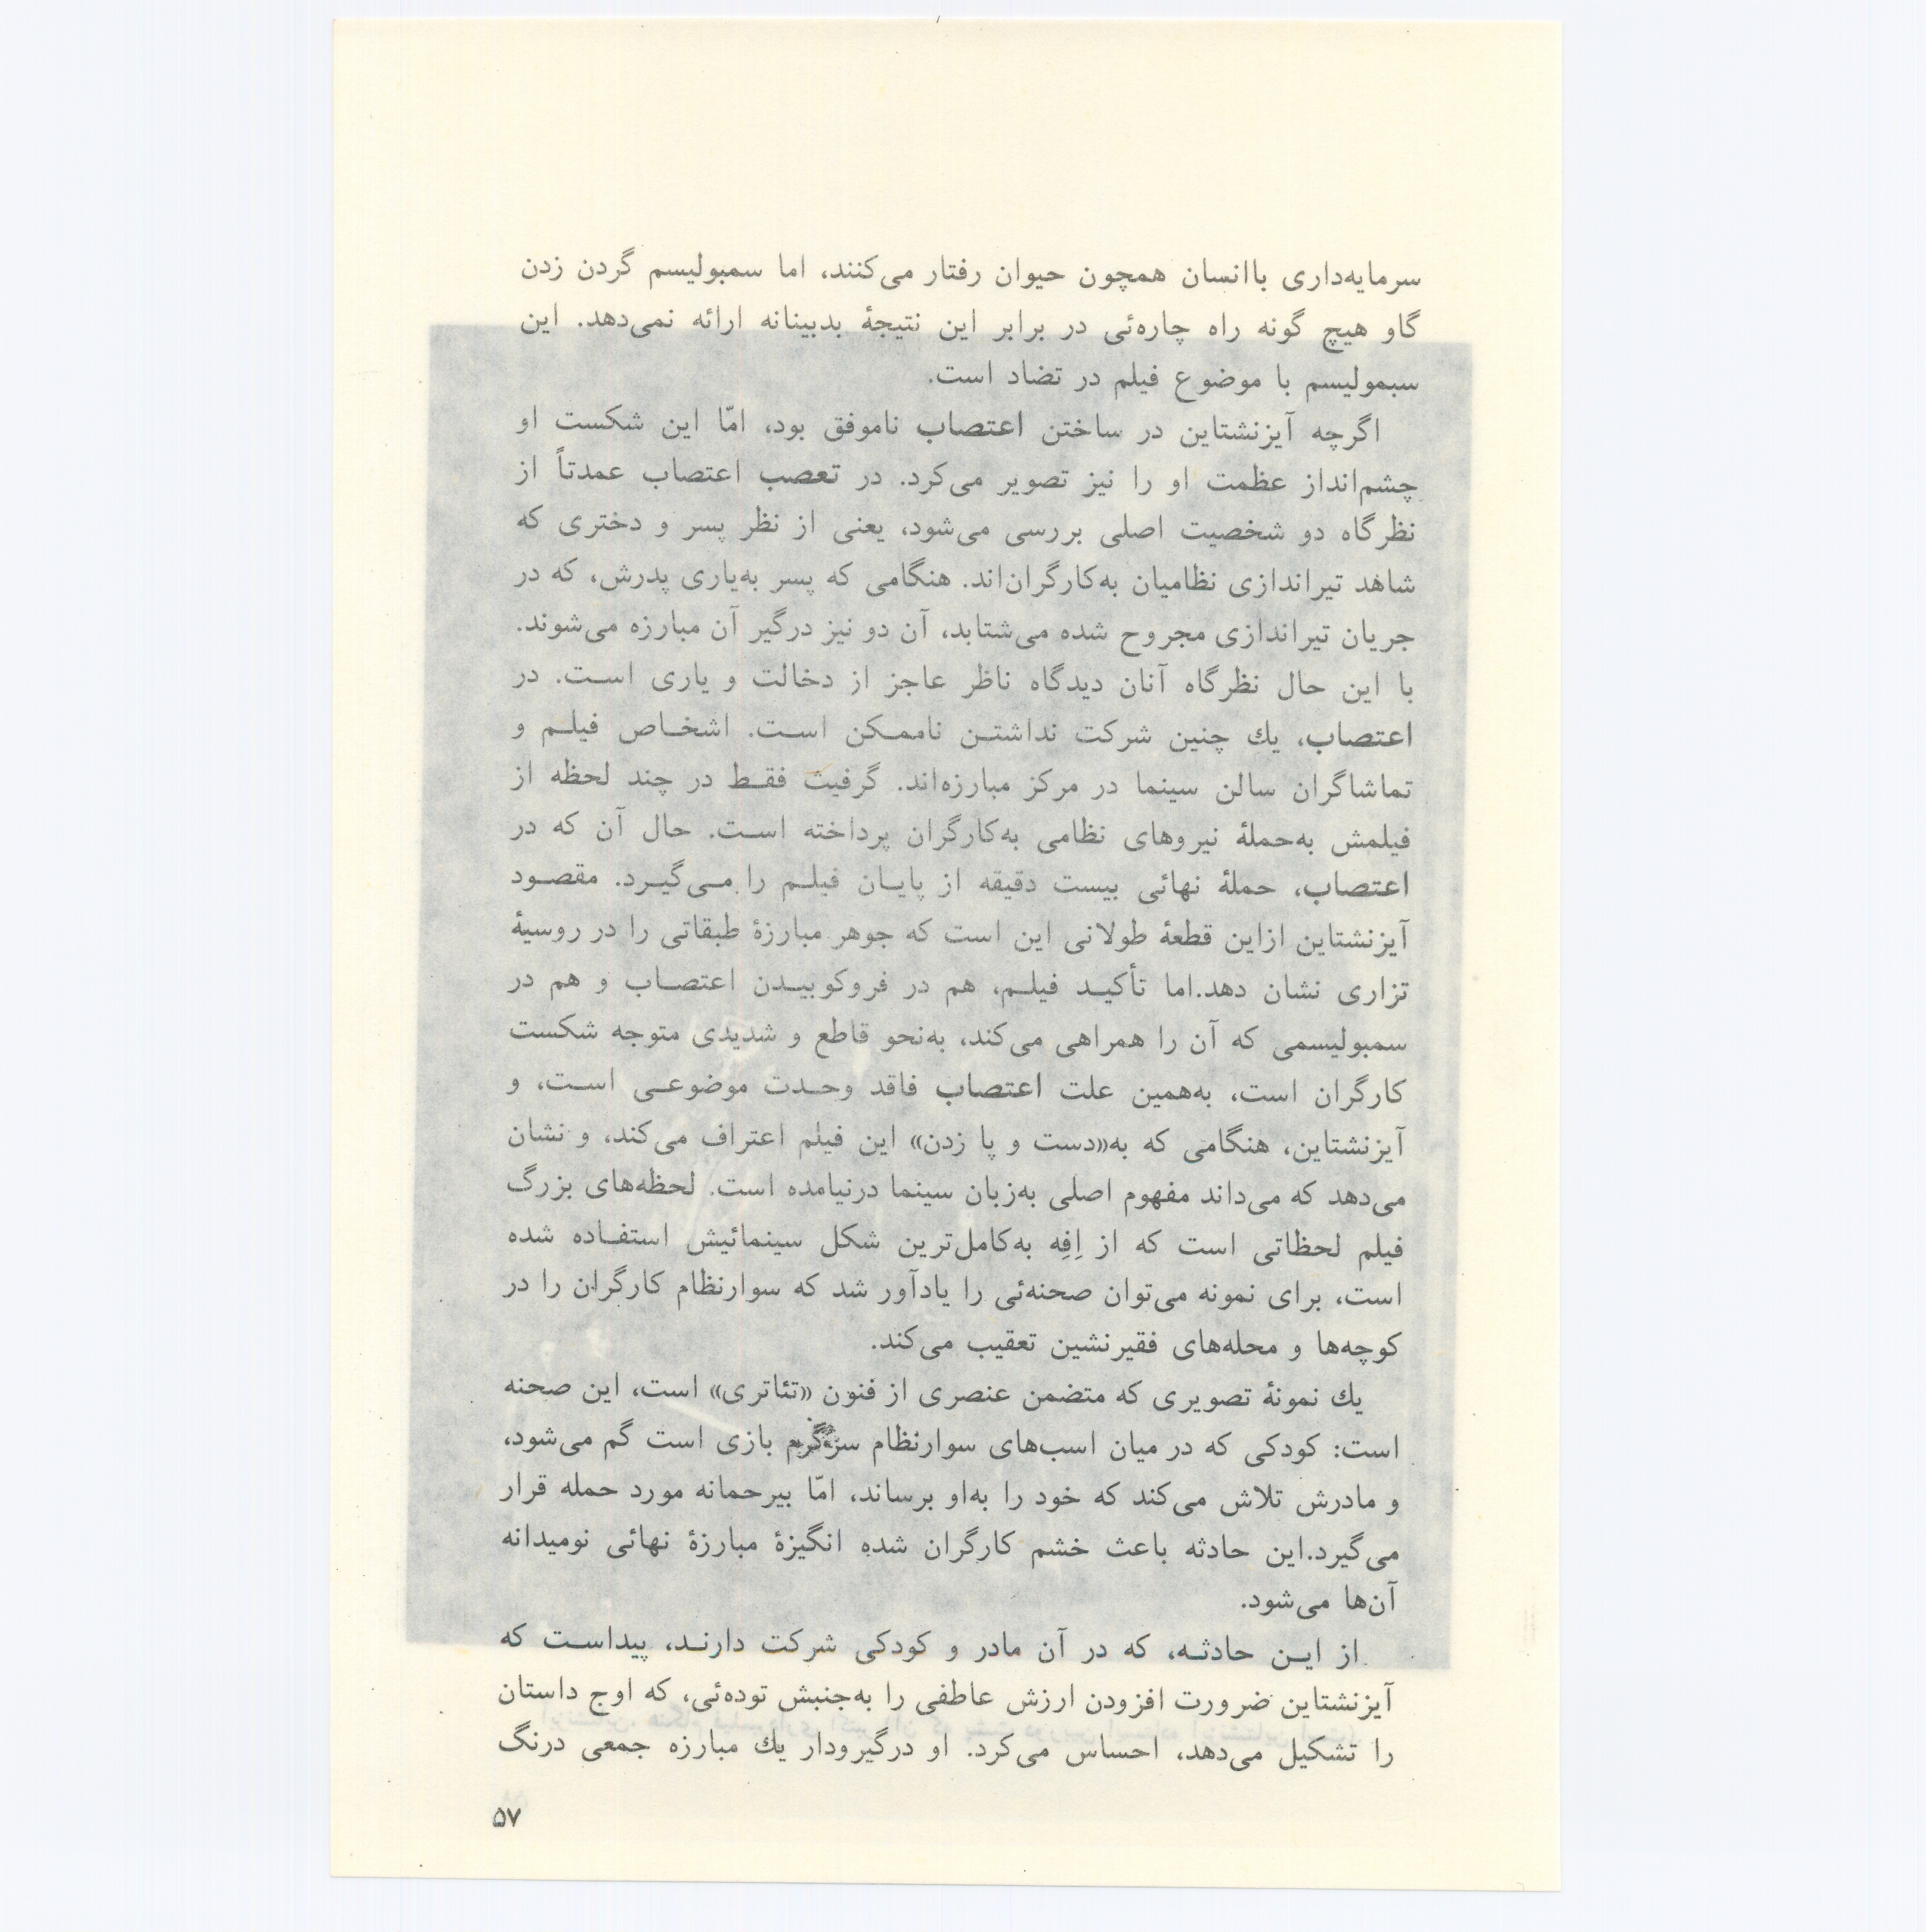 سرمایه‌داری باانسان همچون حیوان رفتار می‌کنند، اما سمبولیسم گردن زدن
گاو هیچ گونه راه چاره‌ئی در برابر این نتیجهٔ بدبینانه ارائه نمی‌دهد. این
سبمولیسم با موضوع فیلم در تضاد است.
اگرچه آیزنشتاین در ساختن اعتصاب ناموفق بود، امّا این شکست او
چشم‌انداز عظمت او را نیز تصویر می‌کرد. در تعصب اعتصاب عمدتاً از
نظرگاه دو شخصیت اصلی بررسی می‌شود، یعنی از نظر پسر و دختری که
شاهد تیراندازی نظامیان به‌کارگران‌اند. هنگامی که پسر به‌یاری پدرش، که در
جریان تیراندازی مجروح شده می‌شتابد، آن دو نیز درگیر آن مبارزه می‌شوند.
با این حال نظرگاه آنان دیدگاه ناظر عاجز از دخالت و یاری است. در
اعتصاب، یك چنین شرکت نداشتن ناممکن است. اشخاص فیلم و
تماشاگران سالن سینما در مرکز مبارزه‌اند. گرفیث فقط در چند لحظه از
فیلمش به‌حملهٔ نیروهای نظامی به‌کارگران پرداخته است. حال آن که در
اعتصاب، حملهٔ نهائی بیست دقیقه از پایان فیلم را می‌گیرد. مقصود
آیزنشتاین ازاین قطعهٔ طولانی این است که جوهر مبارزهٔ طبقاتی را در روسیهٔ
تزاری نشان دهد.اما تأکید فیلم، هم در فروکوبیدن اعتصاب و هم در
سمبولیسمی که آن را همراهی می‌کند، به‌نحو قاطع و شدیدی متوجه شکست
کارگران است، به‌همین علت اعتصاب فاقد وحدت موضوعی است، و
آیزنشتاین، هنگامی که به«دست و پا زدن» این فیلم اعتراف می‌کند، و نشان
می‌دهد که می‌داند مفهوم اصلی به‌زبان سینما درنیامده است. لحظه‌های بزرگ
فیلم لحظاتی است که از اِفِه به‌کامل‌ترین شکل سینمائیش استفاده شده
است، برای نمونه می‌توان صحنه‌ئی را یادآور شد که سوارنظام کارگران را در
کوچه‌ها و محله‌های فقیرنشین تعقیب می‌کند.
یك نمونهٔ تصویری که متضمن عنصری از فنون «تئاتری» است، این صحنه
است: کودکی که در میان اسب‌های سوارنظام سرگرم بازی است گم می‌شود،
و مادرش تلاش می‌کند که خود را به‌او برساند، امّا بیرحمانه مورد حمله قرار
می‌گیرد.این حادثه باعث خشم کارگران شده انگیزهٔ مبارزهٔ نهائی نومیدانه
آن‌ها می‌شود.
از این حادثه، که در آن مادر و کودکی شرکت دارند، پیداست که
آیزنشتاین ضرورت افزودن ارزش عاطفی را به‌جنبش توده‌ئی، که اوج داستان
را تشکیل می‌دهد، احساس می‌کرد. او درگیرودار یك مبارزه جمعی درنگ
۵۷